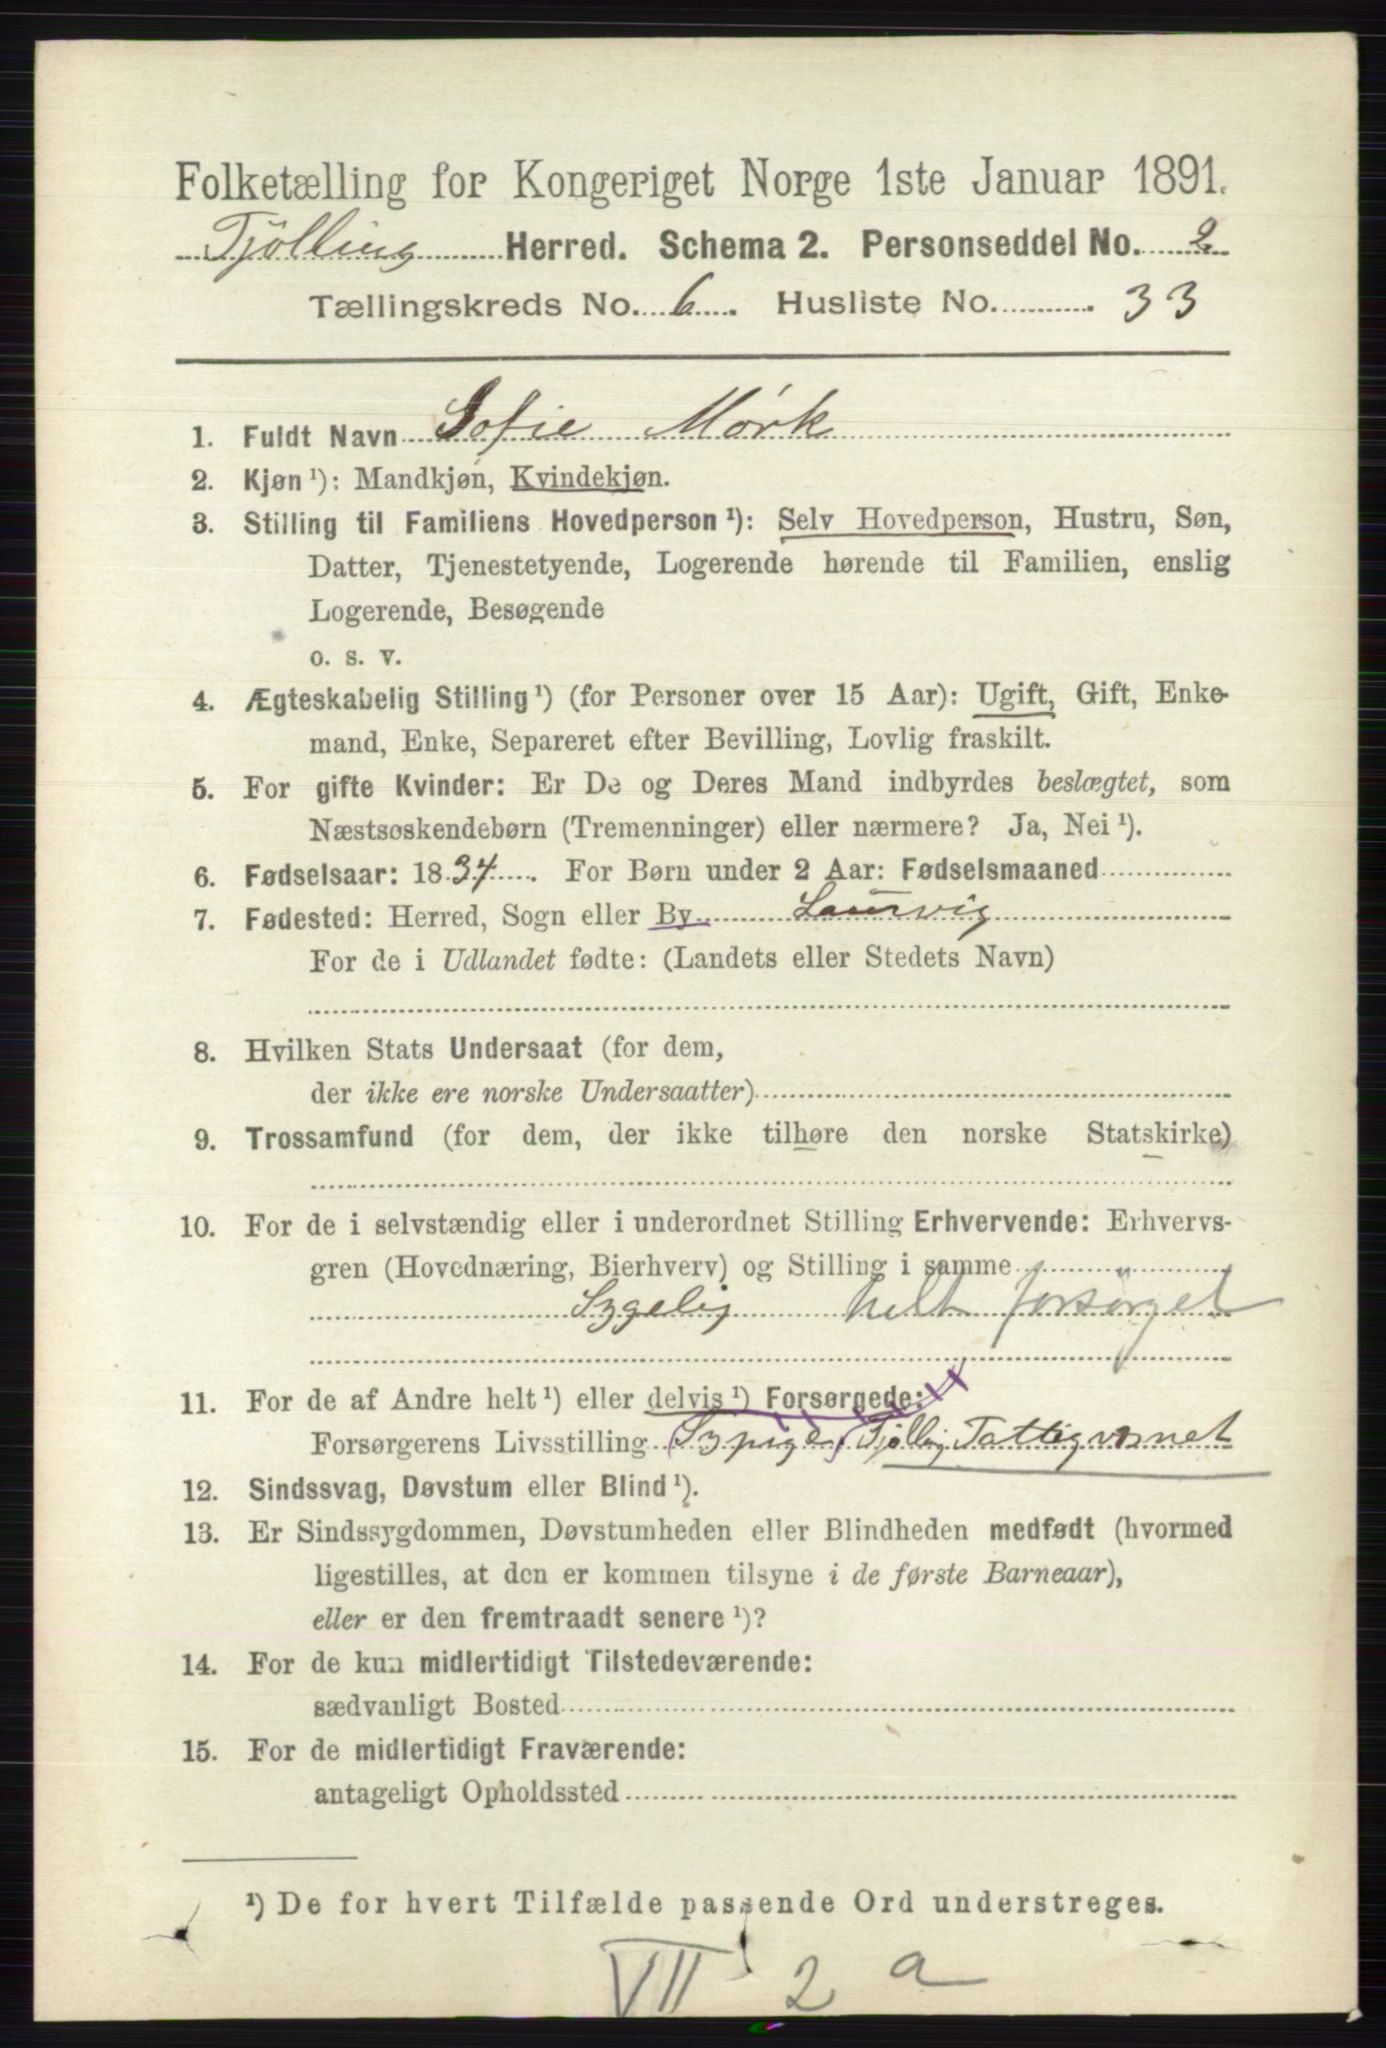 Folketælling for Kongeriget Norge 1ste Januar 1891.
Tjölling Herred. Schema 2. Personseddel No. 2
Tællingskreds No. 6. Husliste No. 33
1. Fuldt Navn Sofie Mørk
2. Kjøn ¹): Mandkjøn, Kvindekjøn.
3. Stilling til Familiens Hovedperson ¹): Selv Hovedperson, Hustru, Søn,
Datter, Tjenestetyende, Logerende hørende til Familien, enslig
Logerende, Besøgende
o. s. v.
4. Ægteskabelig Stilling ¹) (for Personer over 15 Aar): Ugift, Gift, Enke-
mand, Enke, Separeret efter Bevilling, Lovlig fraskilt.
5. For gifte Kvinder: Er De og Deres Mand indbyrdes beslægtet, som
Næstsøskendebørn (Tremenninger) eller nærmere? Ja, Nei ¹).
6. Fødselsaar: 1834. For Børn under 2 Aar: Fødselsmaaned
7. Fødested: Herred, Sogn eller By Laurvig
For de i Udlandet fødte: (Landets eller Stedets Navn)
8. Hvilken Stats Undersaat (for dem,
der ikke ere norske Undersaatter)
9. Trossamfund (for dem, der ikke tilhøre den norske Statskirke)
10. For de i selvstændig eller i underordnet Stilling Erhvervende: Erhvervs-
gren (Hovednæring, Bierhverv) og Stilling i samme
Sygelig helt forsörget
11. For de af Andre helt ¹) eller delvis ¹) Forsørgede:
Forsørgerens Livsstilling (Sypige) Tjölling Fattigvæsnet
12. Sindssvag, Døvstum eller Blind ¹).
13. Er Sindssygdommen, Døvstumheden eller Blindheden medfødt (hvormed
ligestilles, at den er kommen tilsyne i de første Barneaar),
eller er den fremtraadt senere ¹)?
14. For de kun midlertidigt Tilstedeværende:
sædvanligt Bosted
15. For de midlertidigt Fraværende:
antageligt Opholdssted
¹) De for hvert Tilfælde passende Ord understreges.
VII 2 a